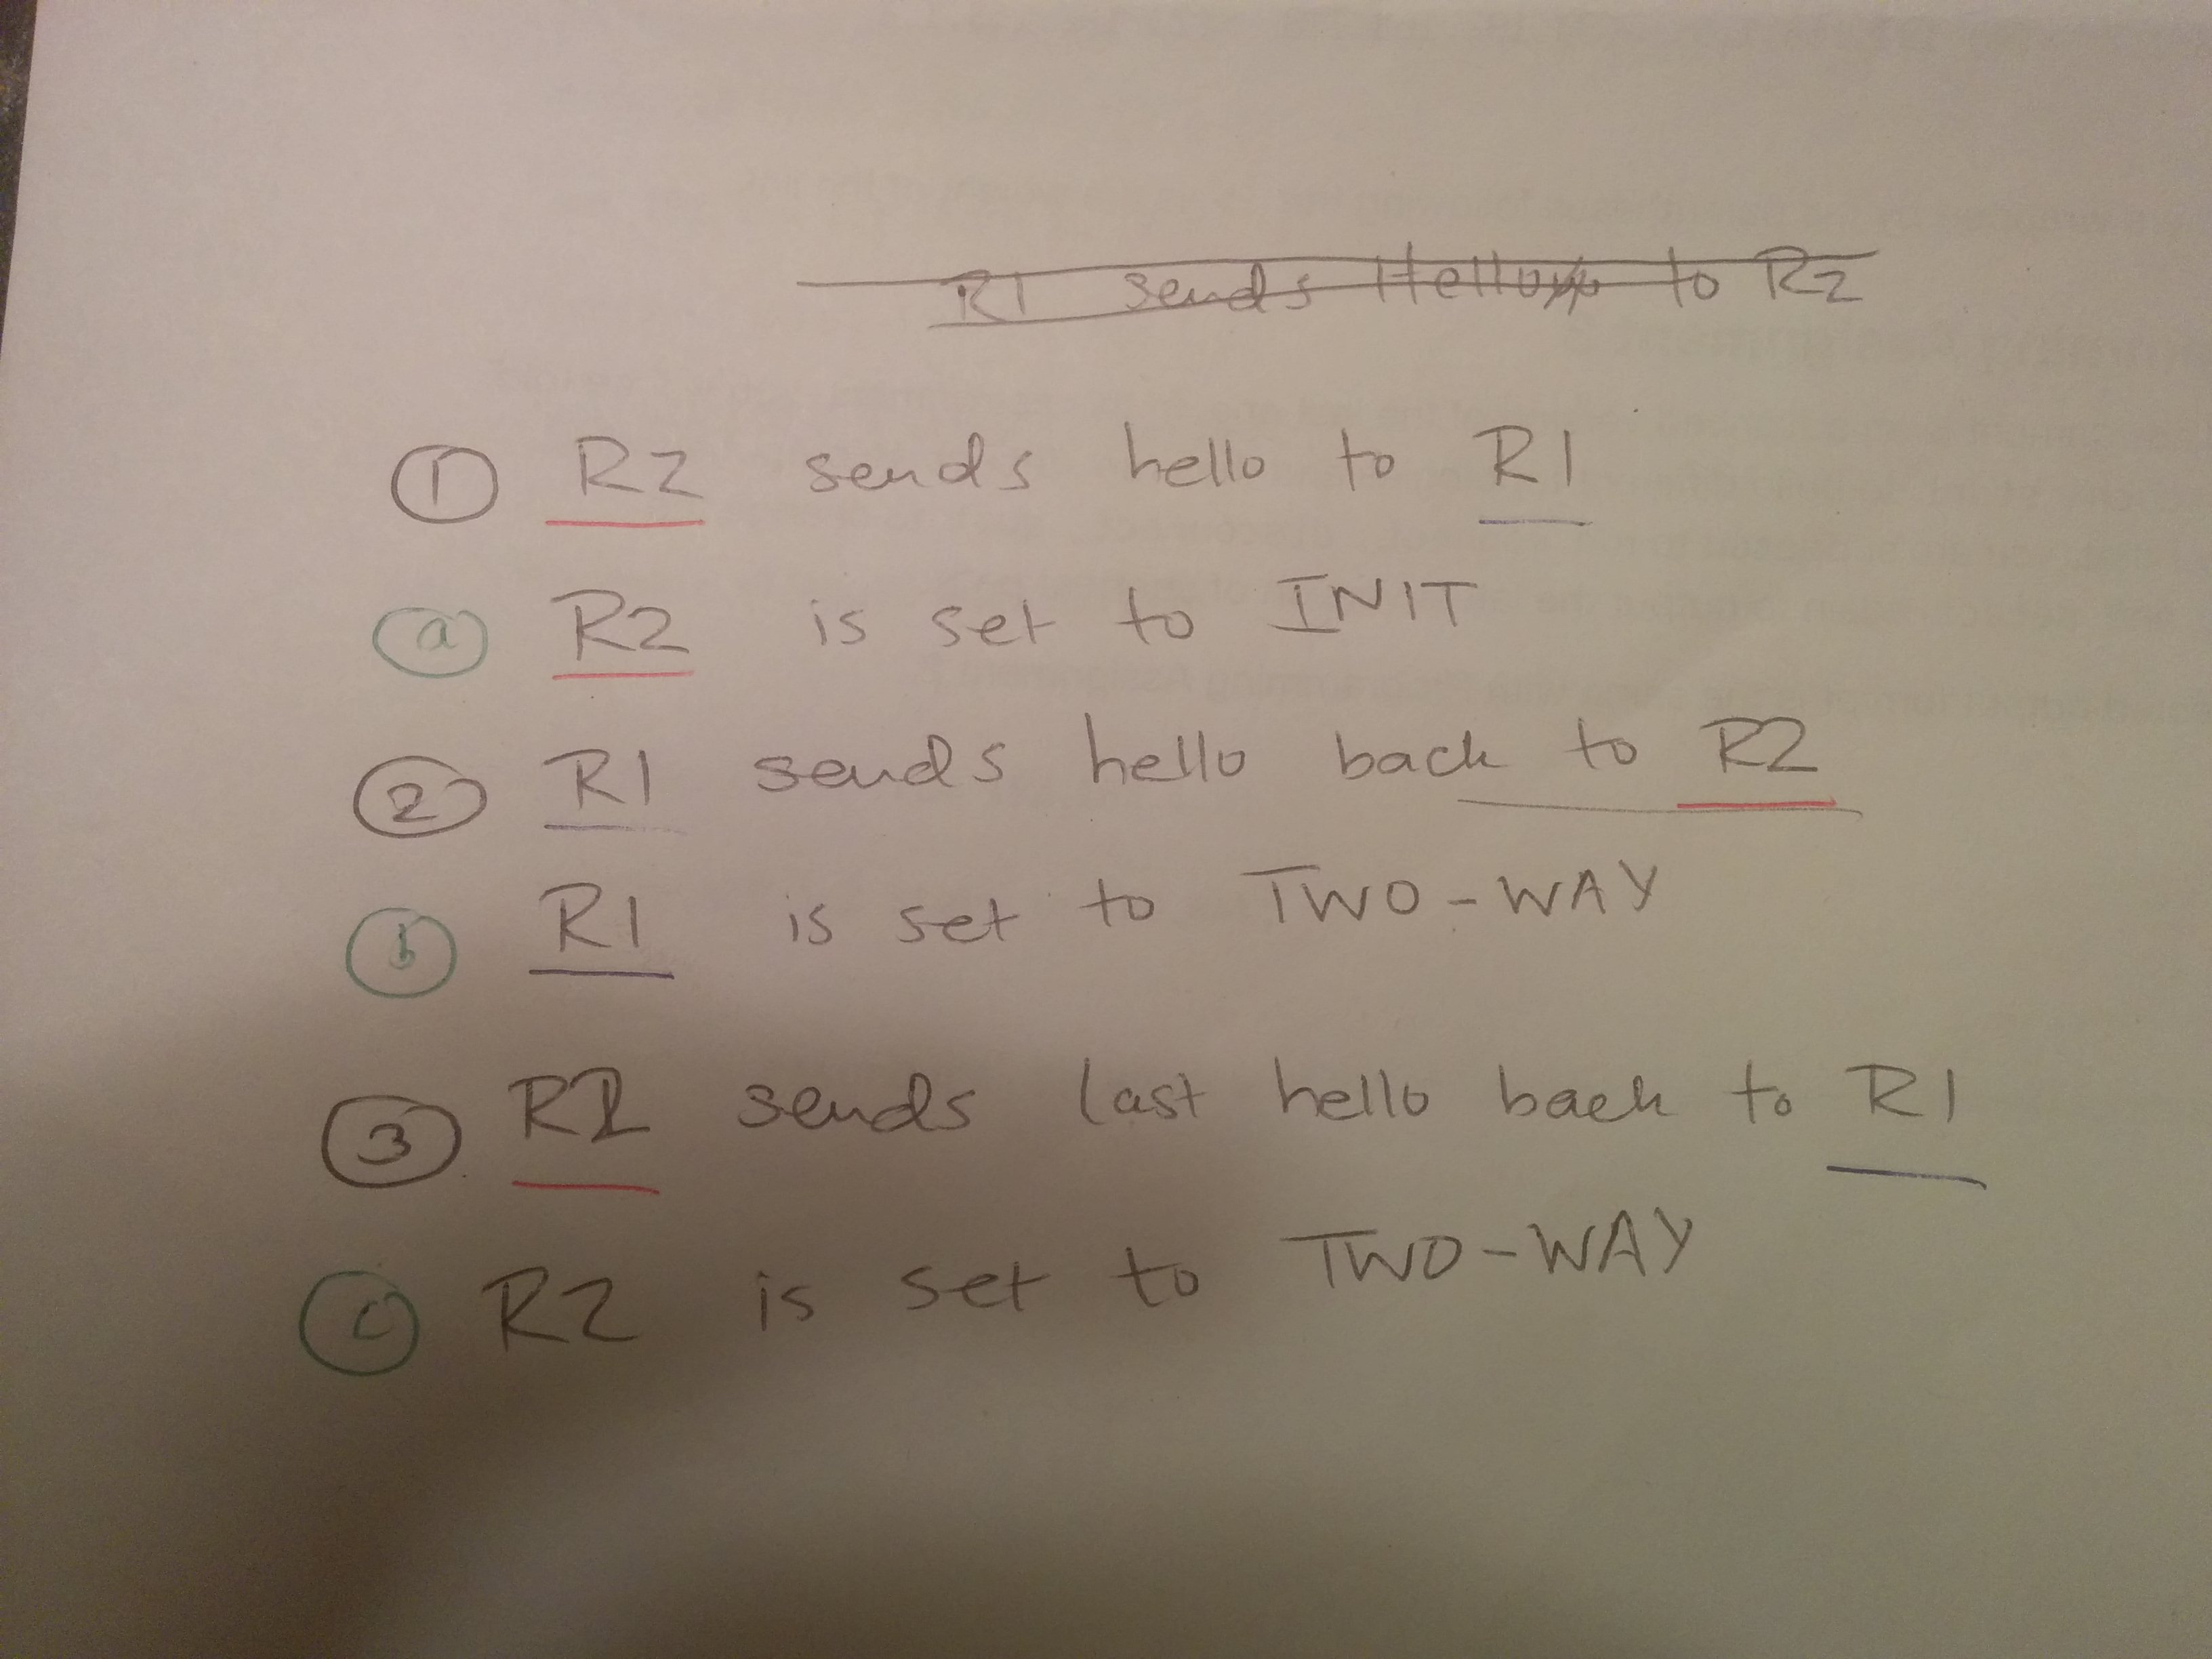 R1 sends Hello to R2
① R2 sends hello to R1
ⓐ R2 is set to INIT
② R1 sends hello back to R2
ⓑ R1 is set to TWO-WAY
③ R2 sends last hello back to R1
ⓒ R2 is set to TWO-WAY